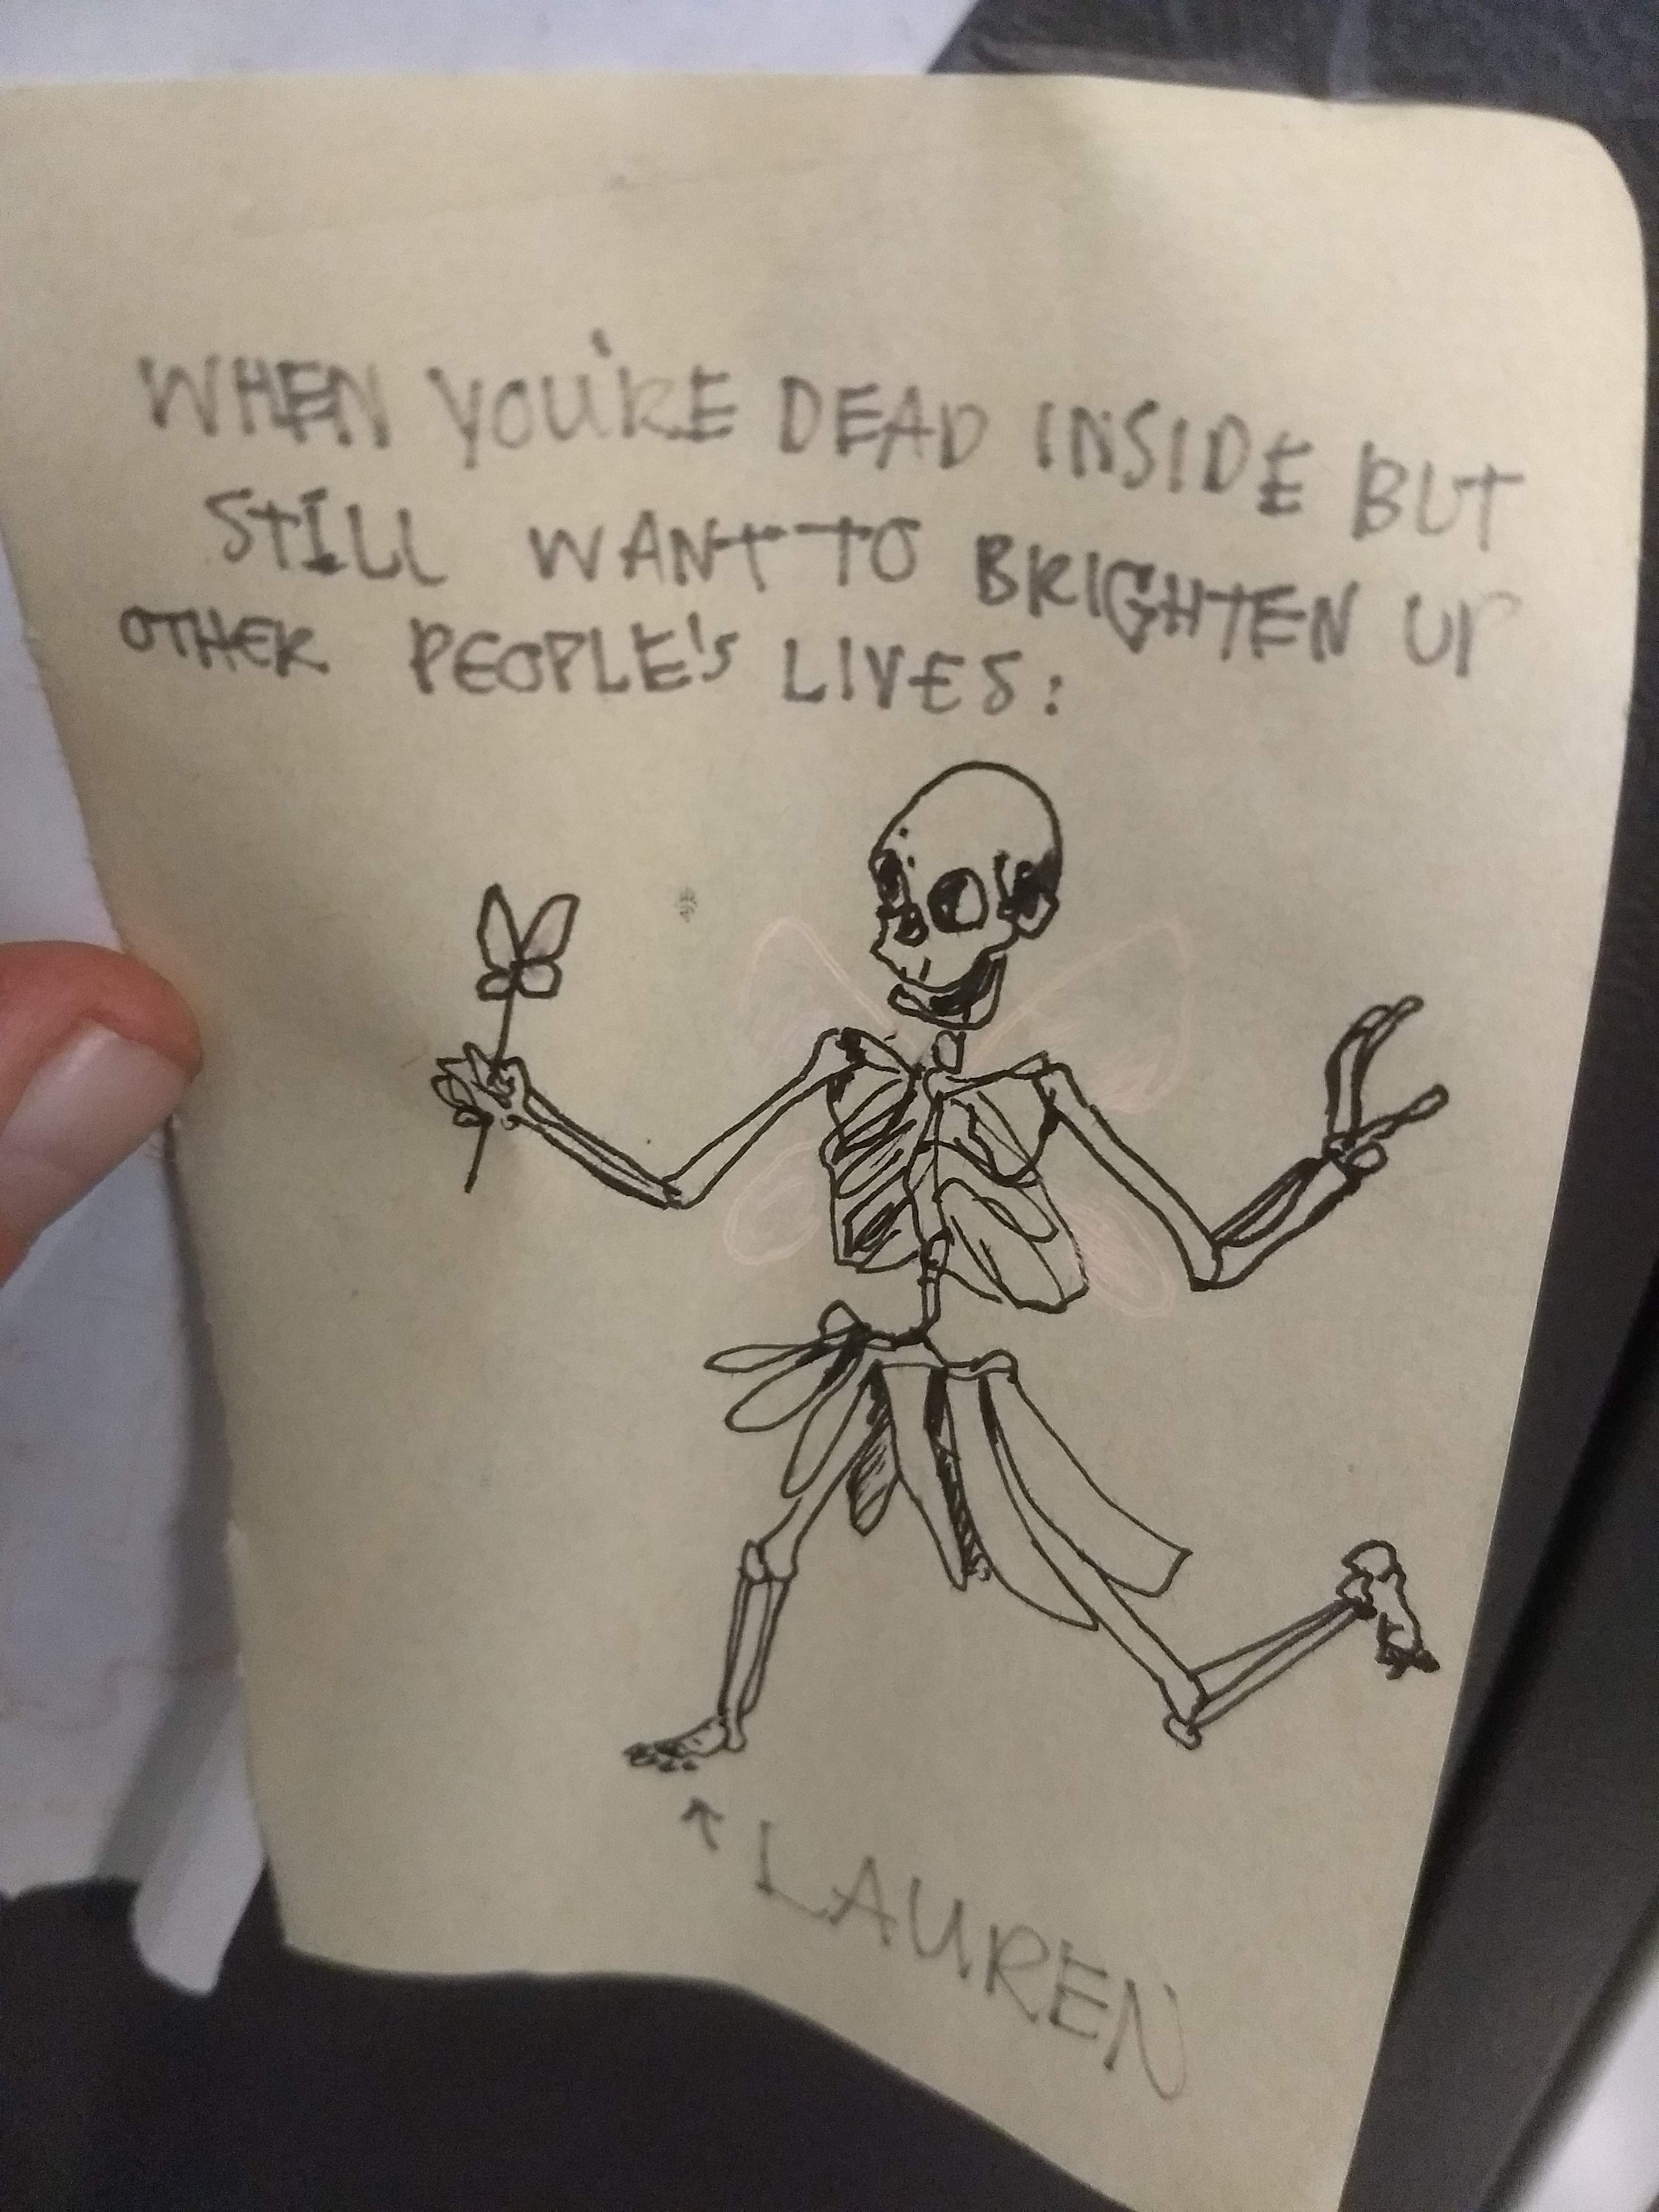 WHEN YOU'RE DEAD INSIDE BUT
STILL WANT TO BRIGHTEN UP
OTHER PEOPLE'S LIVES:
↖ LAUREN